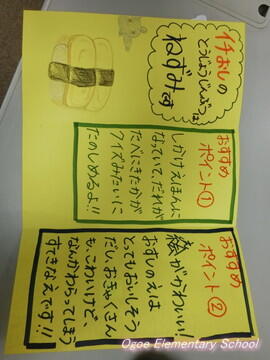 イチおしの
とうじょうじんぶつは、
ねずみです
おすすめ
ポイント①
しかけえほんに
なっていて、だれが
たべにきたかが
クイズみたいに
たのしめるよ!!
おすすめ
ポイント②
絵がかわいい!
おすしのえは
とてもおいしそう
だし、おきゃくさん
も、こわいけど、
なんかわらってしまう
すてきなえです!!
Ogoe Elementary School